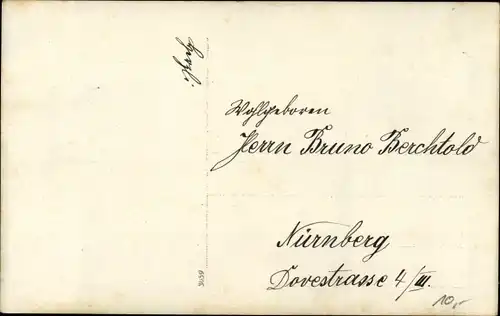 Wohlgeboren
Herrn Bruno Berchtold
Nürnberg
Dovestrasse 4/III.
10,-